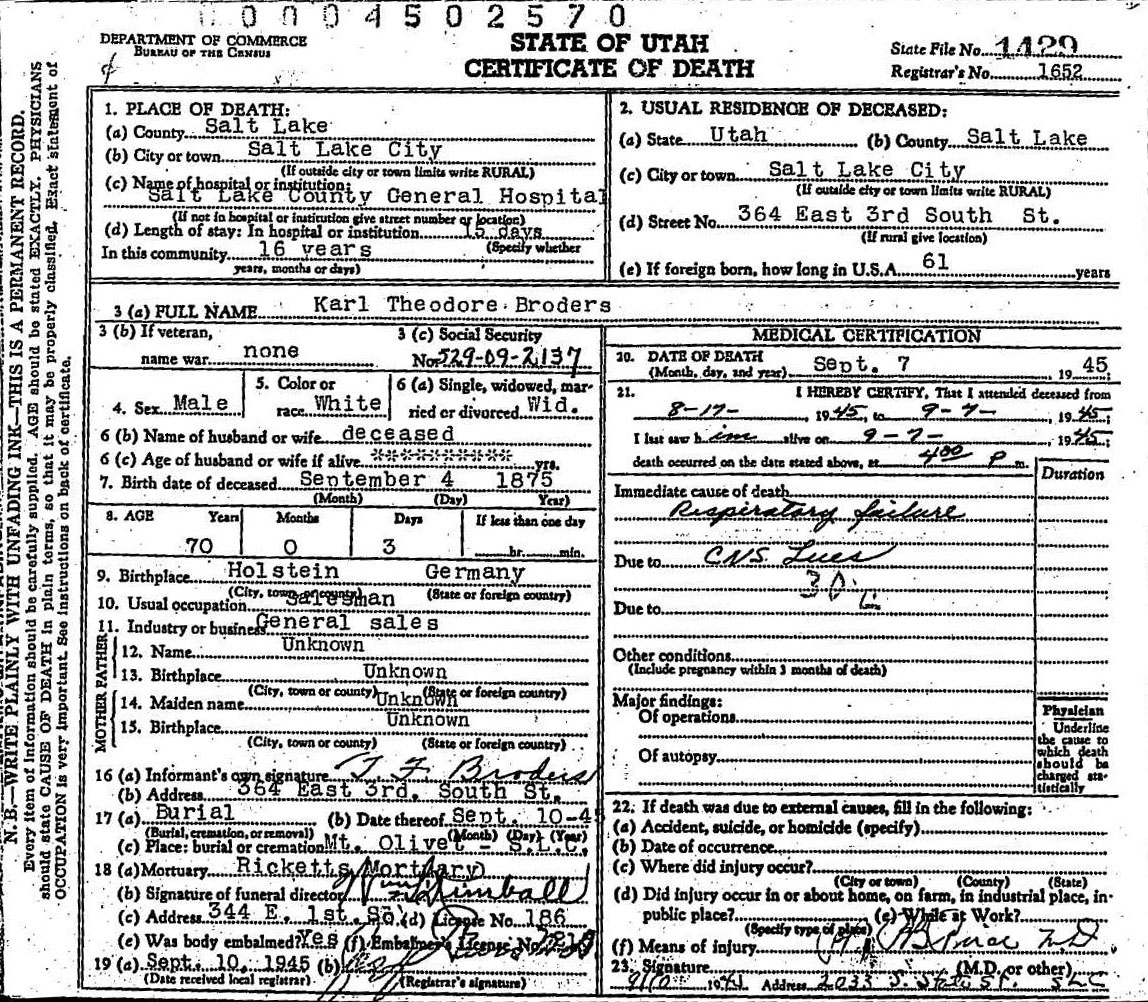 0004502570
DEPARTMENT OF COMMERCE
BUREAU OF THE CENSUS
STATE OF UTAH
CERTIFICATE OF DEATH
State File No. 1429
Registrar's No. 1652
N.B.—WRITE PLAINLY WITH UNFADING INK—THIS IS A PERMANENT RECORD.
Every item of information should be carefully supplied. AGE should be stated EXACTLY. PHYSICIANS
should state CAUSE OF DEATH in plain terms, so that it may be properly classified. Exact statement of
OCCUPATION is very important. See instructions on back of certificate.
1. PLACE OF DEATH:
(a) County Salt Lake
(b) City or town Salt Lake City
(If outside city or town limits write RURAL)
(c) Name of hospital or institution:
Salt Lake County General Hospital
(If not in hospital or institution give street number or location)
(d) Length of stay: In hospital or institution 15 days
(Specify whether
In this community 16 years
years, months or days)
2. USUAL RESIDENCE OF DECEASED:
(a) State Utah (b) County Salt Lake
(c) City or town Salt Lake City
(If outside city or town limits write RURAL)
(d) Street No. 364 East 3rd South St.
(If rural give location)
(e) If foreign born, how long in U.S.A. 61 years
3 (a) FULL NAME Karl Theodore Broders
3 (b) If veteran,
name war none
3 (c) Social Security
No. 529-09-2137
4. Sex Male
5. Color or
race White
6 (a) Single, widowed, mar-
ried or divorced Wid.
6 (b) Name of husband or wife deceased
6 (c) Age of husband or wife if alive ************** yrs.
7. Birth date of deceased September 4 1875
(Month) (Day) Year)
8. AGE Years Months Days If less than one day
70 0 3 hr. min.
9. Birthplace Holstein Germany
(City, town or county) (State or foreign country)
10. Usual occupation Salesman
11. Industry or business General sales
FATHER
12. Name Unknown
13. Birthplace Unknown
(City, town or county) (State or foreign country)
MOTHER
14. Maiden name Unknown
15. Birthplace Unknown
(City, town or county) (State or foreign country)
16 (a) Informant's own signature T F Broders
(b) Address 364 East 3rd. South St.
17 (a) Burial (b) Date thereof Sept. 10-45
(Burial, cremation, or removal) (Month) (Day) (Year)
(c) Place: burial or cremation Mt. Olivet - S.L.C.
18 (a) Mortuary Ricketts Mortuary
(b) Signature of funeral director Kimball
(c) Address 344 E. 1st. So. (d) License No. 186
(e) Was body embalmed? Yes (f) Embalmer's License No.
19 (a) Sept. 10, 1945 (b)
(Date received local registrar) (Registrar's signature)
MEDICAL CERTIFICATION
20. DATE OF DEATH Sept. 7 1945
(Month, day, and year)
21. I HEREBY CERTIFY, That I attended deceased from
8-17- 1945, to 9-7- 1945;
I last saw him alive on 9-7- 1945;
death occurred on the date stated above, at 4:00 P m.
Duration
Immediate cause of death
Respiratory failure
Due to CNS Lues
30
Due to
Other conditions
(Include pregnancy within 3 months of death)
Major findings:
Of operations
Of autopsy
Physician
Underline
the cause to
which death
should be
charged sta-
tistically
22. If death was due to external causes, fill in the following:
(a) Accident, suicide, or homicide (specify)
(b) Date of occurrence
(c) Where did injury occur?
(City or town) (County) (State)
(d) Did injury occur in or about home, on farm, in industrial place, in-
public place? (e) While at Work?
(Specify type of place)
(f) Means of injury
23. Signature M D (M.D. or other)
Address 2033 S. State St. SLC